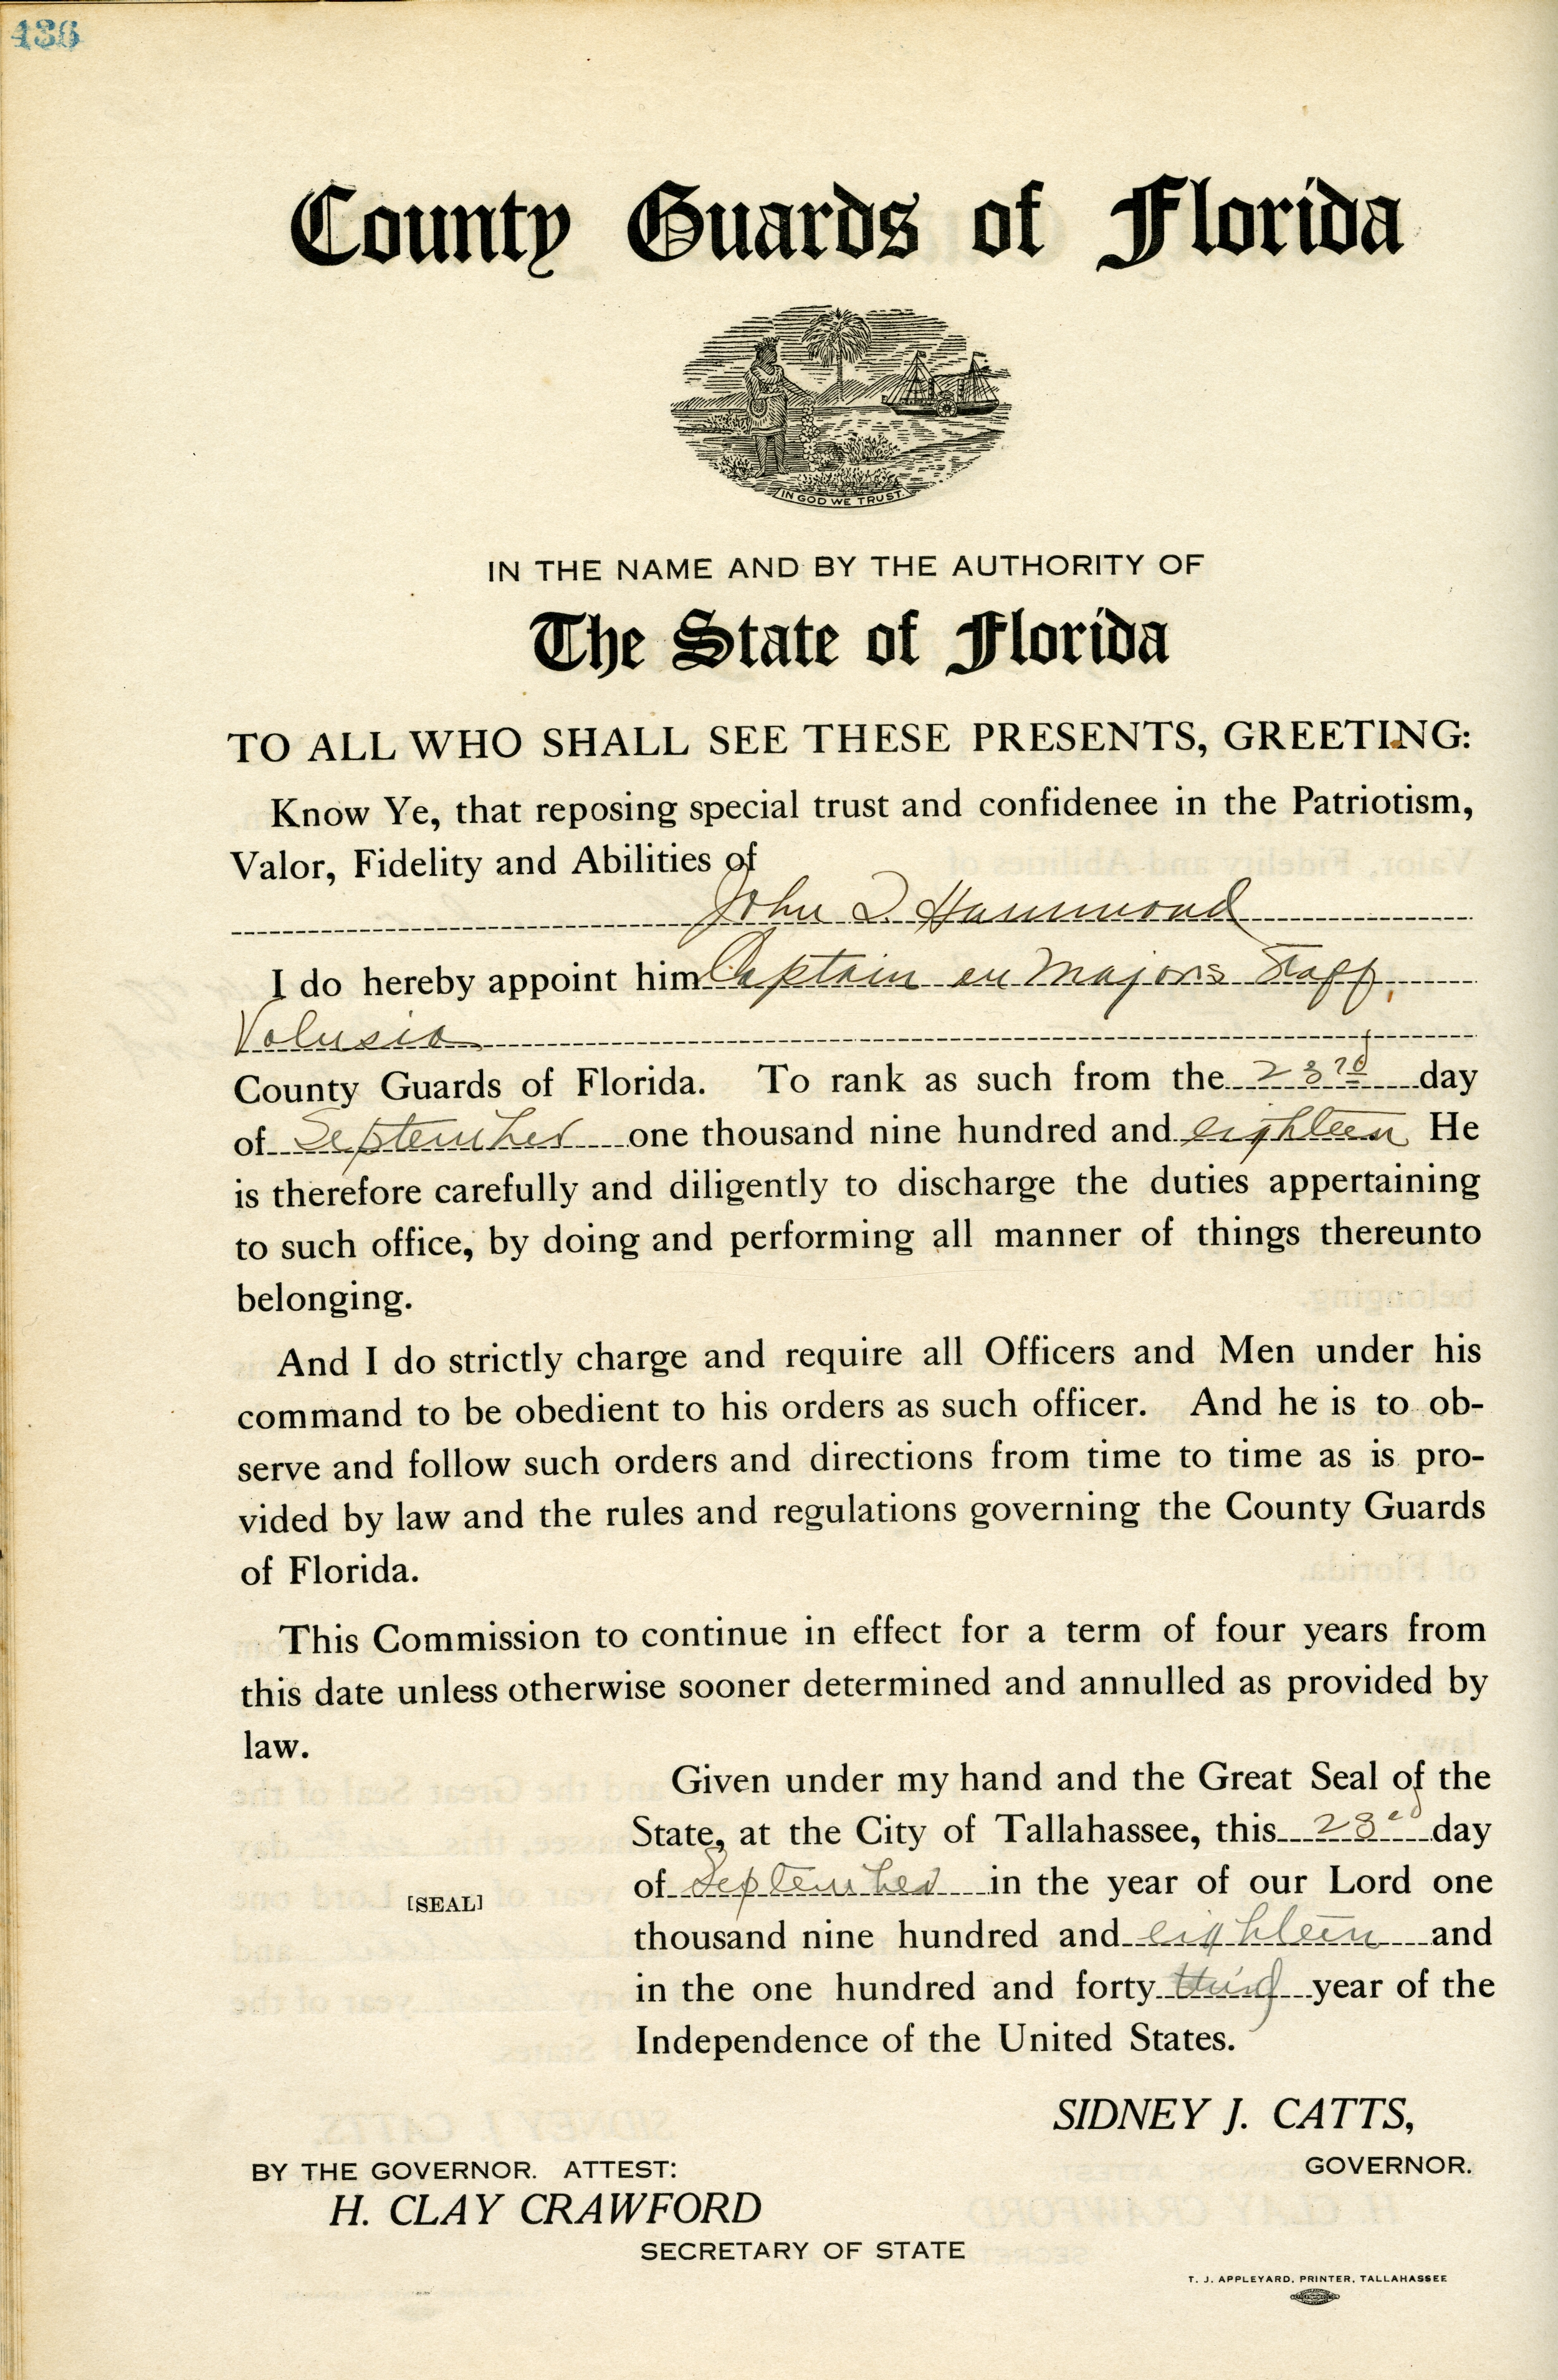 436
County Guards of Florida
IN GOD WE TRUST.
IN THE NAME AND BY THE AUTHORITY OF
The State of Florida
TO ALL WHO SHALL SEE THESE PRESENTS, GREETING:
Know Ye, that reposing special trust and confidenee in the Patriotism,
Valor, Fidelity and Abilities of
John D. Hammond
I do hereby appoint him Captain on Majors Staff,
Volusia
County Guards of Florida. To rank as such from the 23rd day
of September one thousand nine hundred and eighteen He
is therefore carefully and diligently to discharge the duties appertaining
to such office, by doing and performing all manner of things thereunto
belonging.
And I do strictly charge and require all Officers and Men under his
command to be obedient to his orders as such officer. And he is to ob-
serve and follow such orders and directions from time to time as is pro-
vided by law and the rules and regulations governing the County Guards
of Florida.
This Commission to continue in effect for a term of four years from
this date unless otherwise sooner determined and annulled as provided by
law.
Given under my hand and the Great Seal of the
State, at the City of Tallahassee, this 23rd day
of September in the year of our Lord one
[SEAL]
thousand nine hundred and eighteen and
in the one hundred and forty third year of the
Independence of the United States.
SIDNEY J. CATTS,
GOVERNOR.
BY THE GOVERNOR. ATTEST:
H. CLAY CRAWFORD
SECRETARY OF STATE
T. J. APPLEYARD, PRINTER, TALLAHASSEE